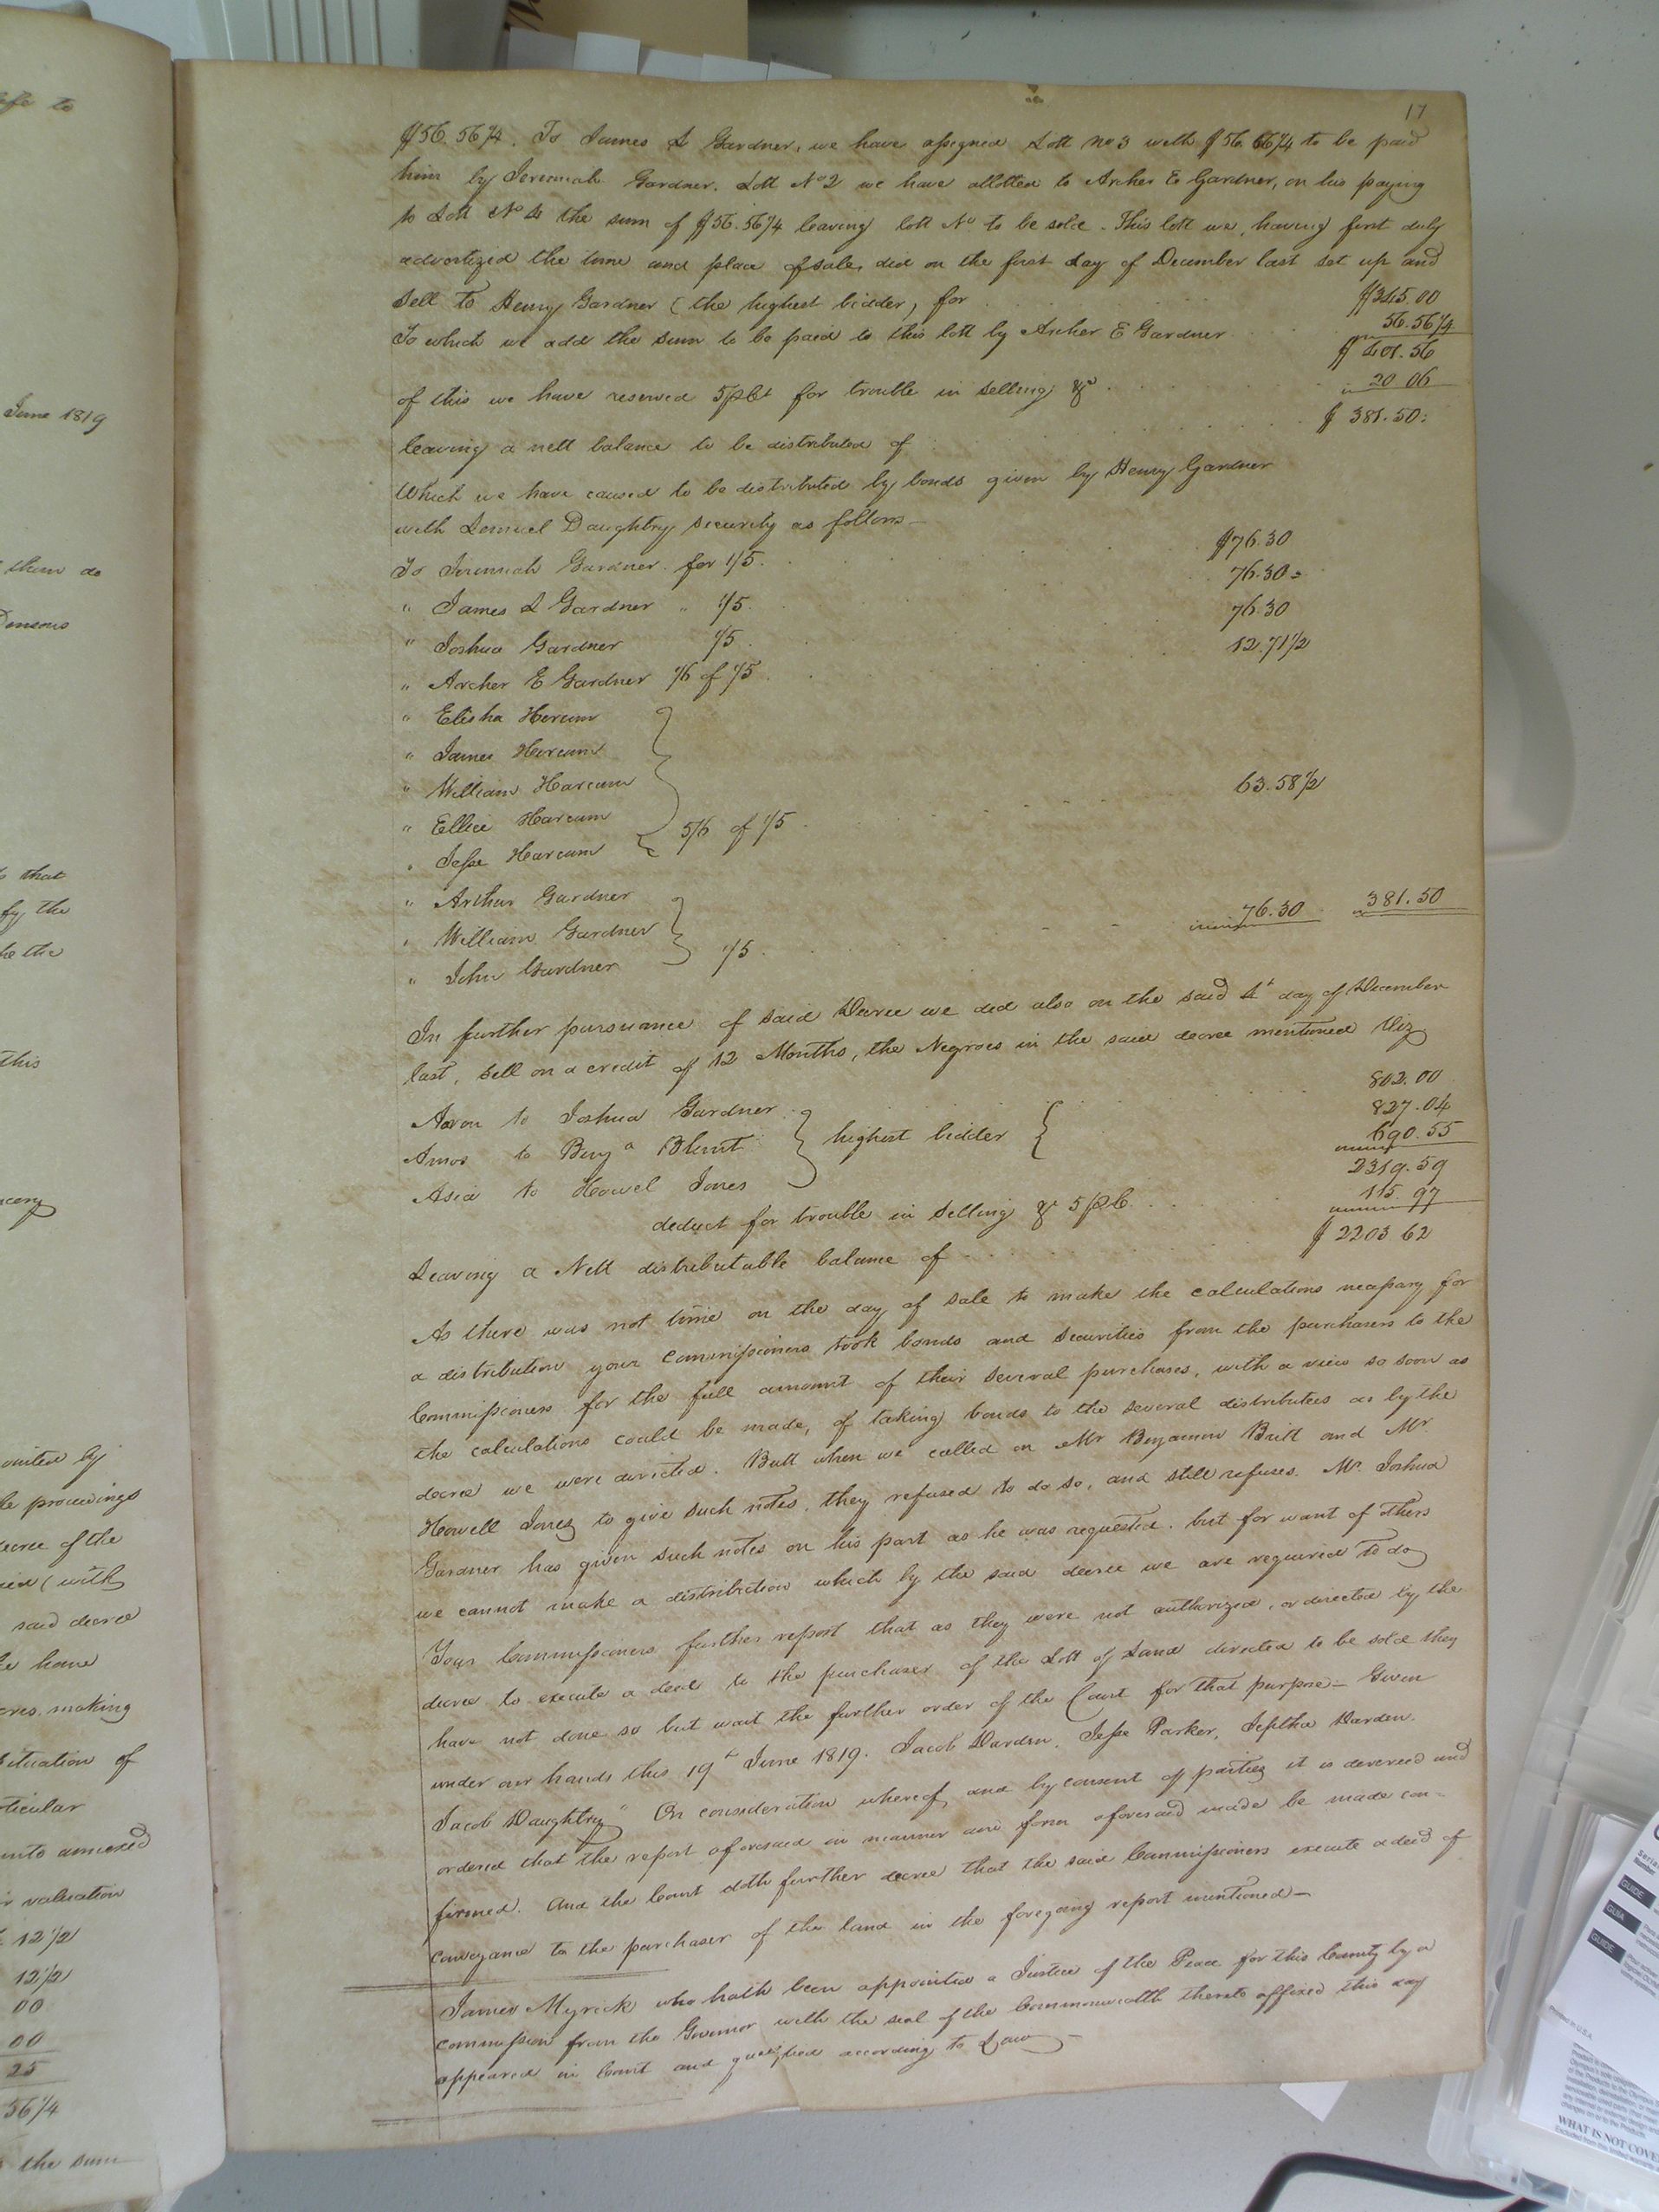 17
$56.56¼. To James L Gardner, we have assigned Lott No 3 with $56.66¼ to be paid
him by Jeremiah Gardner. Lott No 2 we have allotted to Archer E Gardner, on his paying
to Lott No 4 the sum of $56.56¼ leaving lott No to be sold. This lott we, having first duly
advertized the time and place of sale, did on the first day of December last set up and
Sell to Henry Gardner (the highest bidder, for $345.00
To which we add the sum to be paid to this lott by Archer E Gardner 56.56¼
$ 401.56
of this we have reserved 5 pCt for trouble in selling &c 20 06
leaving a nett balance to be distributed of $ 381.50
Which we have caused to be distributed by bonds given by Henry Gardner
with Lemuel Daughtry security as follows—
To Jeremiah Gardner for 1/5. $76.30
" James L Gardner " 1/5. 76.30
" Joshua Gardner 1/5. 76.30
" Archer E Gardner 1/6 of 1/5. 12.71½
" Elisha Harcum
" James Harcum
" William Harcum
" Ellice Harcum
" Jesse Harcum 5/6 of 1/5 63.58½
" Arthur Gardner
" William Gardner
" John Gardner 1/5. 76.30 381.50
In further pursuance of said Decree we did also on the said 4t day of December
last, sell on a credit of 12 Months, the Negroes in the said decree mentioned Viz
Aaron to Joshua Gardner 802.00
Amos to Benja highest bidder 827.04
Asia to Howel Jones 690.55
2319.59
deduct for trouble in selling & 5 pC 115.97
Leaving a Nett distributable balance of $ 2203 62
As there was not time on the day of sale to make the calculations necessary for
a distribution your Commissioners took bonds and securities from the purchasers to the
Commissioners for the full amount of their several purchases, with a view so soon as
the calculations could be made, of taking bonds to the several distributees as by the
decree we were directed. Butt when we called on Mr Benjamin Britt and Mr
Howell Jones to give such notes, they refused to do so, and still refuses. Mr. Joshua
Gardner has given such notes on his part as he was requested. but for want of others
we cannot make a distribution which by the said decree we are required to do
Your Commissioners further report that as they were not authorized, or directed by the
decree to execute a deed to the purchaser of the Lott of Land directed to be sold they
have not done so but wait the further order of the Court for that purpose— Given
under our hands this 19t June 1819. Jacob Darden, Jesse Parker, Jeptha Darden.
Jacob Daughtry" On consideration whereof, and by consent of parties it is decreed and
ordered that the report aforesaid in manner and form aforesaid made be made con=
firmed. And the Court doth further decree that the said Commissioners execute a deed of
conveyance to the purchaser of the land in the foregoing report mentioned—
James Myrick who hath been appointed a Justice of the Peace for this County by a
commission from the Governor with the seal of the Commonwealth thereto affixed this day
appeared in Court and qualified according to Law—
June 1819
them do
that
fy the
this
proceedings
decree of the
said decree
making
situation of
unto annexed
valuation
12½
12½
00
00
25
56¼
the sum
GUIDE
GUIA
GUIDE
WHAT IS NOT COVE